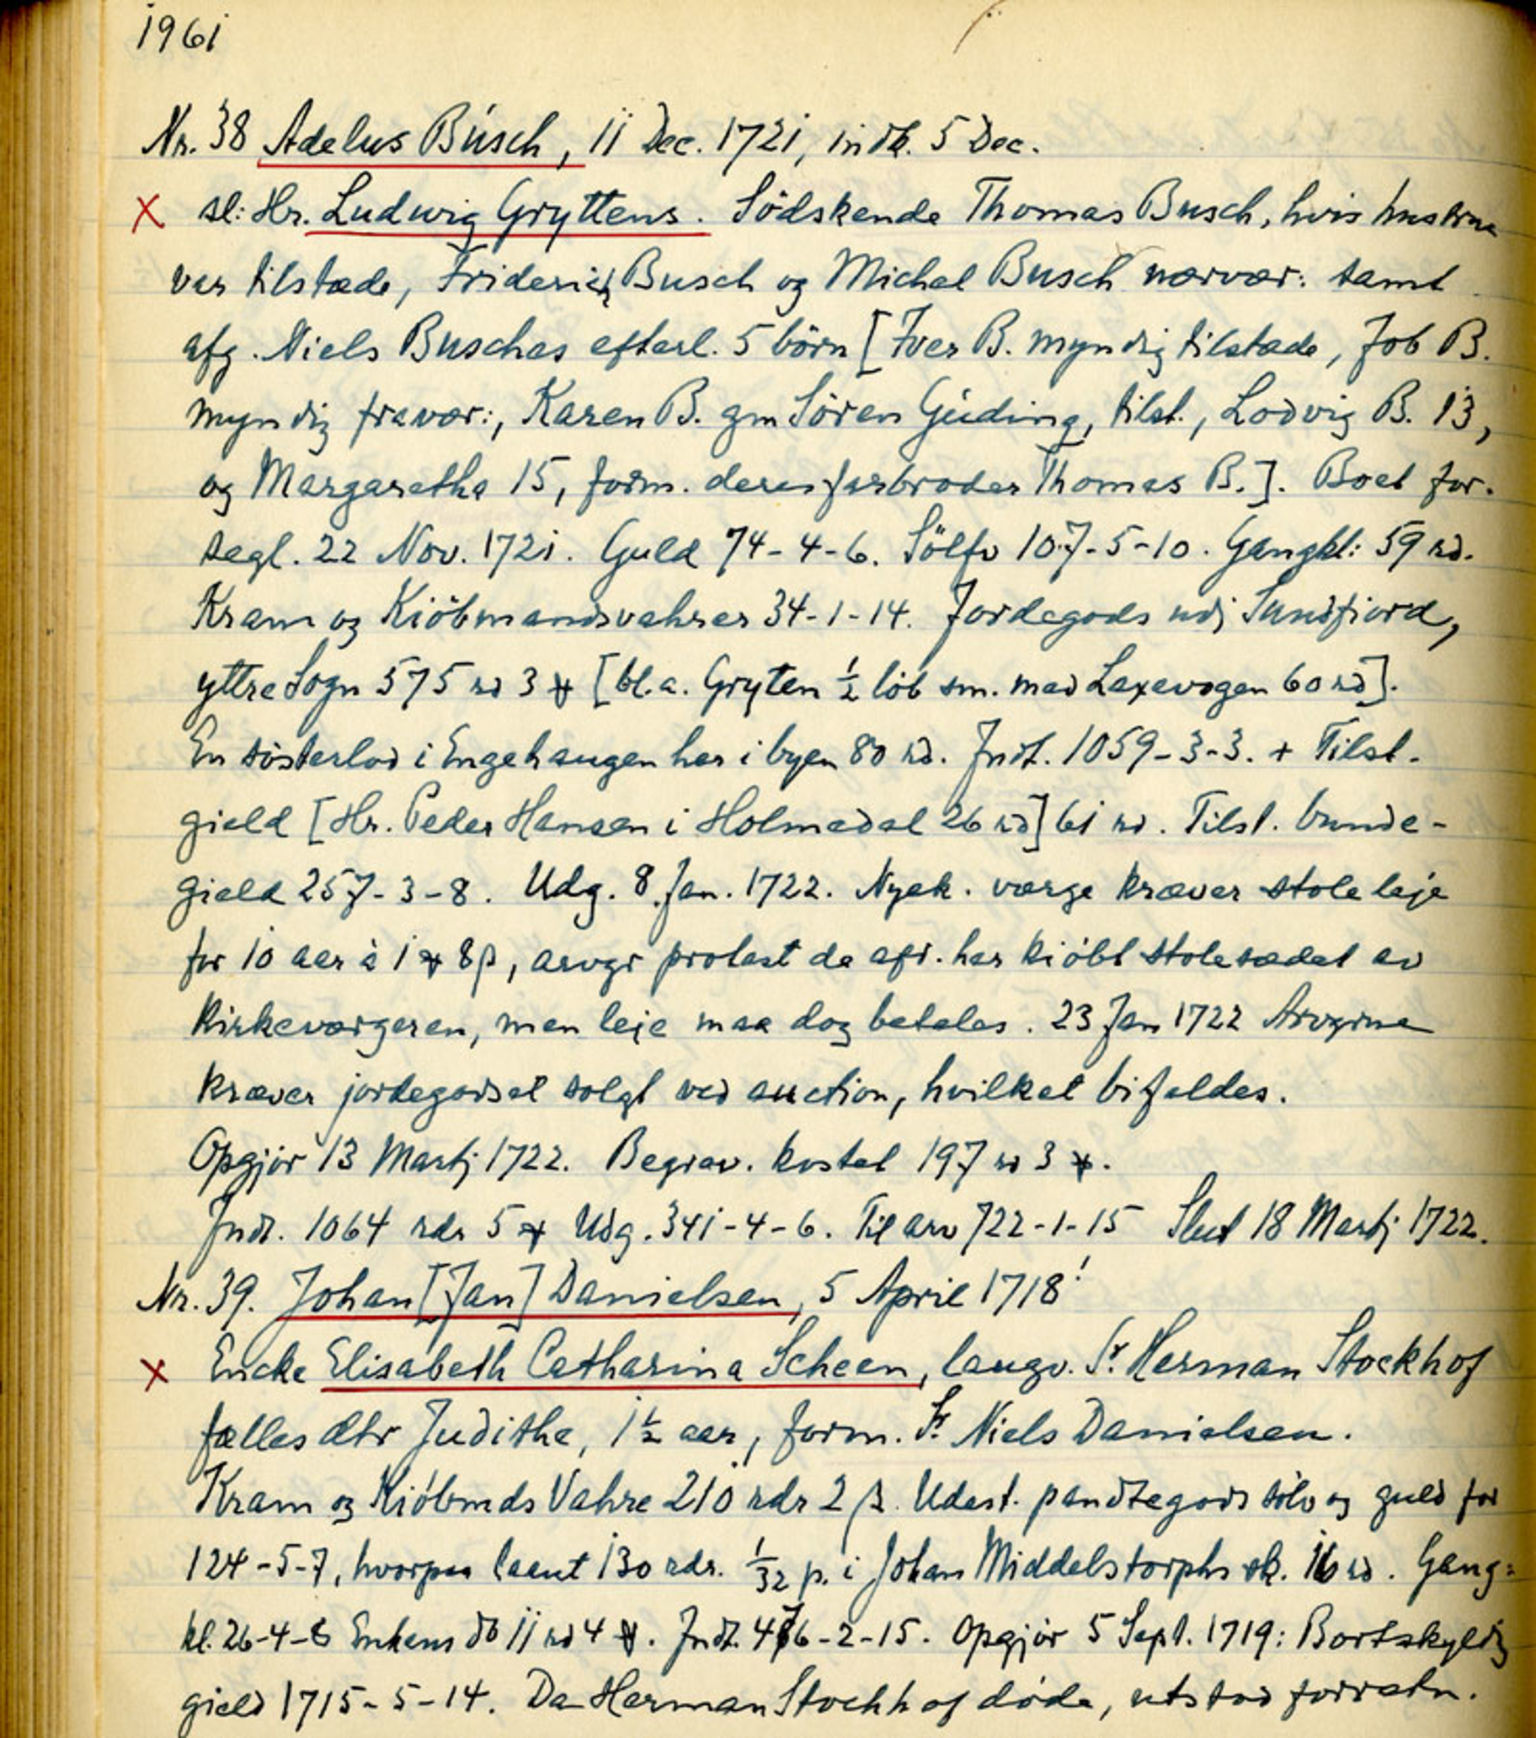 1961
Nr. 38 Adelus Büsch, 11 Dec. 1721, indk. 5 Dec.
x sl: Hr. Ludwig Gryttens. Södskende Thomas Busch, hvis hustrue
var tilstæde, Frideric Busch og Michel Busch nærvær: samt
afg. Niels Busches efterl. 5 börn [Iver B. myndig tilstæde, Job B.
myndig fravær:, Karen B. gm Sören Güding, tilst., Lodvig B. 13,
og Margaretha 15, form. deres farbroder Thomas B.]. Boet for-
segl. 22 Nov. 1721. Guld 74-4-6. Sölfv 107-5-10. Gangkl: 59 rd.
Kram og Kiöbmandsvahrer 34-1-14. Jordegods udj Sundfiord,
yttre Sogn 575 rd 3 ⩩ [bl.a. Gryten ½ löb sm. med Laxevogen 60 rd].
En sösterlod i Engehaugen her i byen 80 rd. Indt. 1059-3-3. + Tilst.
gield [Hr. Peder Hansen i Holmedal 26 rd] 61 rd. Tilst. bunde-
gield 257-3-8. Udg. 8 Jan. 1722. Nyek. værge kræver stoleleje
for 10 aar à 1 ⩩ 8 β, arvgr protest da afd. har kiöbt stolesædet av
kirkeværgeren, men leje maa dog betales. 23 Jan 1722 Arvgrne
kræver jordegodset solgt ved auction, hvilket bifaldes.
Opgjör 13 Martj 1722. Begrav. kostet 197 rd 3 ⩩.
Indt. 1064 rdr 5 ⩩ Udg. 341-4-6. Til arv 722-1-15 Slut 18 Martj 1722.
Nr. 39. Johan [Jan] Danielsen, 5 April 1718!
x Encke Elisabeth Catharina Scheen, laugv. Sr. Herman Stockhof
fælles dtr Judithe, 1½ aar, form. Sr. Niels Danielsen.
Kram og Kiöbmds Vahre 210 rdr 2 β. Udest. pandtegods sölv og guld for
124-5-7, hvorpaa laant 130 rdr. 1/32 p. i Johan Middelstorphs sk. 16 rd. Gang=
kl. 26-4-8 Enkens do 11 rd 4 ⩩. Indt. 476-2-15. Opgjör 5 Sept. 1719: Bortskyldig
gield 1715-5-14. Da Herman Stockhof döde, utstod forretn.